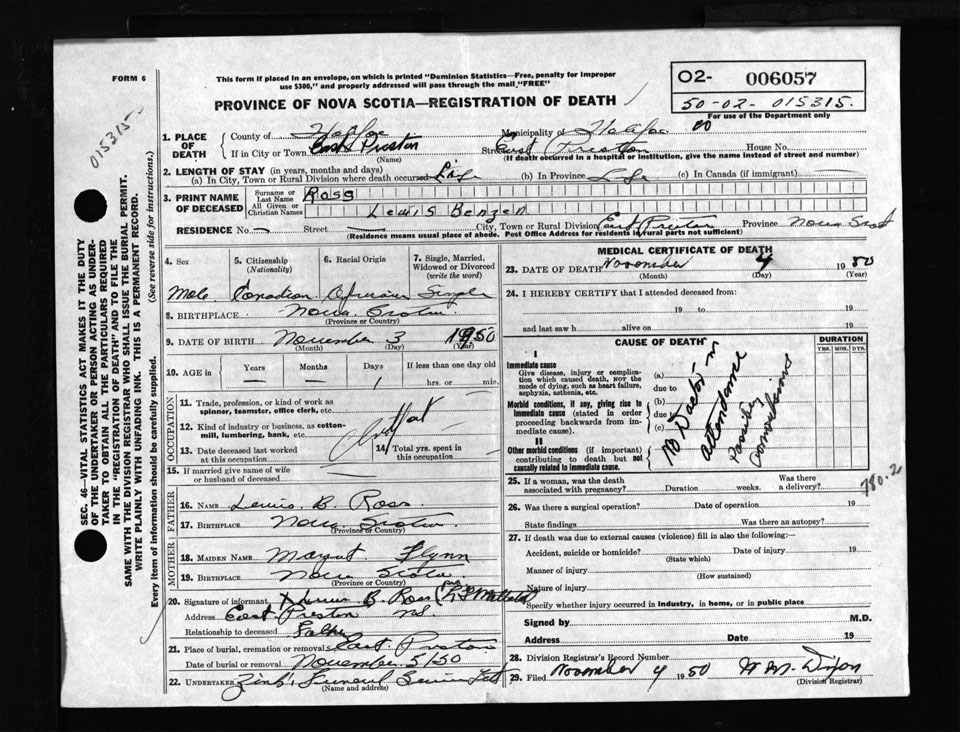 FORM 6
This form if placed in an envelope, on which is printed "Dominion Statistics—Free, penalty for improper
use $300," and properly addressed will pass through the mail "FREE"
PROVINCE OF NOVA SCOTIA—REGISTRATION OF DEATH
O2- 006057
50-02-015315.
For use of the Department only
015315
1. PLACE OF DEATH County of Halifax Municipality of Halifax Co
If in City or Town East Preston Street East Preston House No.
(Name) (If death occurred in a hospital or institution, give the name instead of street and number)
2. LENGTH OF STAY (in years, months and days)
(a) In City, Town or Rural Division where death occurred Life (b) In Province Life (c) In Canada (if immigrant)
3. PRINT NAME OF DECEASED Surname or Last Name Ross
All Given or Christian Names Lewis Benzen
RESIDENCE No. — Street — City, Town or Rural Division East Preston Province Nova Scotia
(Residence means usual place of abode. Post Office Address for residents in rural parts not sufficient)
SEC. 46—VITAL STATISTICS ACT MAKES IT THE DUTY
OF THE UNDERTAKER OR PERSON ACTING AS UNDER-
TAKER TO OBTAIN ALL THE PARTICULARS REQUIRED
IN THE "REGISTRATION OF DEATH" AND TO FILE THE
SAME WITH THE DIVISION REGISTRAR WHO SHALL ISSUE THE BURIAL PERMIT.
WRITE PLAINLY WITH UNFADING INK. THIS IS A PERMANENT RECORD.
Every item of information should be carefully supplied. (See reverse side for instructions.)
4. Sex 5. Citizenship (Nationality) 6. Racial Origin 7. Single, Married, Widowed or Divorced (write the word)
Male Canadian African Single
8. BIRTHPLACE Nova Scotia
(Province or Country)
9. DATE OF BIRTH November 3 1950
(Month) (Day) (Year)
10. AGE in Years Months Days If less than one day old
— — 1 hrs. or min.
OCCUPATION
11. Trade, profession, or kind of work as
spinner, teamster, office clerk, etc.
12. Kind of industry or business, as cotton-
mill, lumbering, bank, etc.
13. Date deceased last worked
at this occupation
14. Total yrs. spent in
this occupation
15. If married give name of wife
or husband of deceased
FATHER
16. NAME Lewis B. Ross
17. BIRTHPLACE Nova Scotia
(Province or Country)
MOTHER
18. MAIDEN NAME Flynn
19. BIRTHPLACE Nova Scotia
(Province or Country)
20. Signature of informant X Lewis B. Ross
Address East Preston NS
Relationship to deceased Father
21. Place of burial, cremation or removal East Preston
Date of burial or removal November 5/50
22. UNDERTAKER Zink's Funeral Service Ltd
(Name and address)
MEDICAL CERTIFICATE OF DEATH
23. DATE OF DEATH November 4 1950
(Month) (Day) (Year)
24. I HEREBY CERTIFY that I attended deceased from:
19 to 19
and last saw h alive on 19
CAUSE OF DEATH DURATION
YRS. MOS. DYS.
I
Immediate cause
Give disease, injury or complica-
tion which caused death, NOT the
mode of dying, such as heart failure,
asphyxia, asthenia, etc.
(a)
due to
Morbid conditions, if any, giving rise to
immediate cause (stated in order
proceeding backwards from im-
mediate cause).
(b)
due to
(c)
II
Other morbid conditions (if important)
contributing to death but not
causally related to immediate cause.
No Doctor in
attendance
Possibly
Convulsions
780.2
25. If a woman, was the death
associated with pregnancy? Duration weeks. Was there
a delivery?
26. Was there a surgical operation? Date of operation 19
State findings Was there an autopsy?
27. If death was due to external causes (violence) fill in also the following:—
Accident, suicide or homicide? Date of injury 19
(State which)
Manner of injury
(How sustained)
Nature of injury
Specify whether injury occurred in industry, in home, or in public place
Signed by M.D.
Address Date 19
28. Division Registrar's Record Number
29. Filed November 4 1950 W. M. Dixon
(Division Registrar)